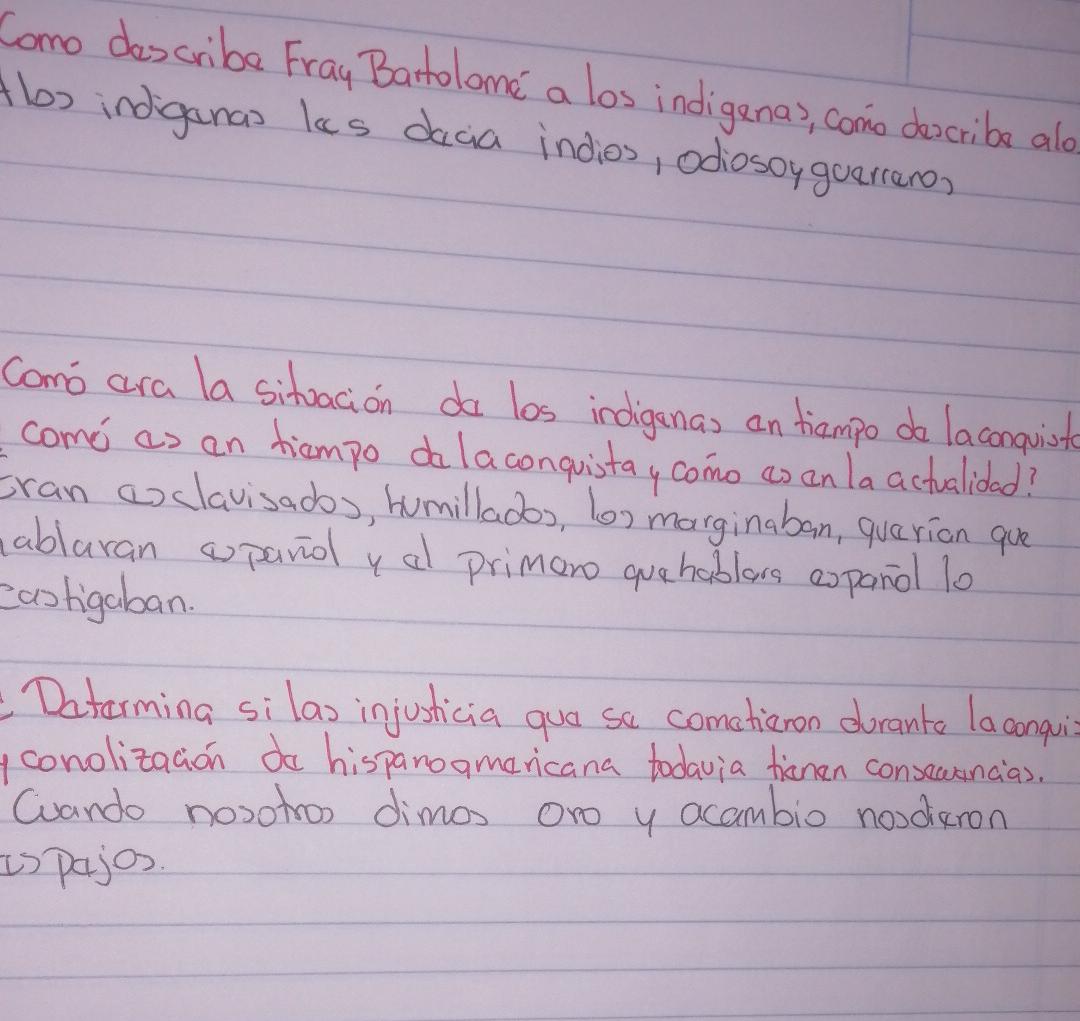 Como describe Fray Bartolomé a los indigenas, como describe alo
Alos indigenas les decia indios, odiosoy guerreros
Comó era la situación de los indigenas en tiempo de laconquista
comó es en tiempo de laconquista y como es en la actualidad?
Eran esclavisados, humillados, los marginaban, querían que
hablaran español y al primero quehablara español lo
castigaban.
Determina si las injusticia que se cometieron durante laconqui
y conolización de hispanoamericana todavia tienen consecuencias.
Cuando nosotros dimos oro y acambio nosdieron
espejos.